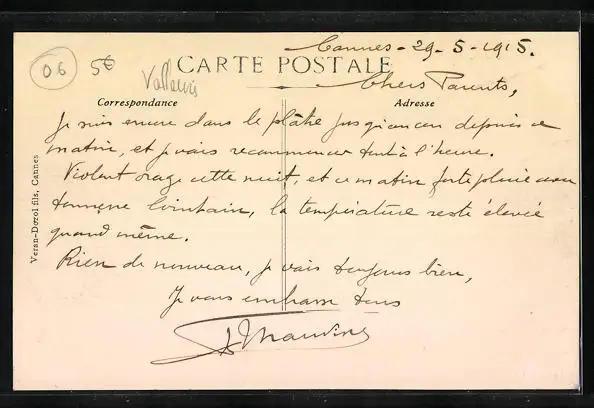 Cannes - 29 - 5 - 1915.
06 5€ Vallauris
CARTE POSTALE
Chers Parents,
Correspondance Adresse
Je suis encore dans le plâtre jusqu'au cou depuis ce
matin, et je vais recommencer tout à l'heure.
Violent orage cette nuit, et ce matin forte pluie avec
tonnerre lointain, la température reste élevée
quand même.
Rien de nouveau, je vais toujours bien,
Je vous embrasse tous
Veran-Dozol fils, Cannes